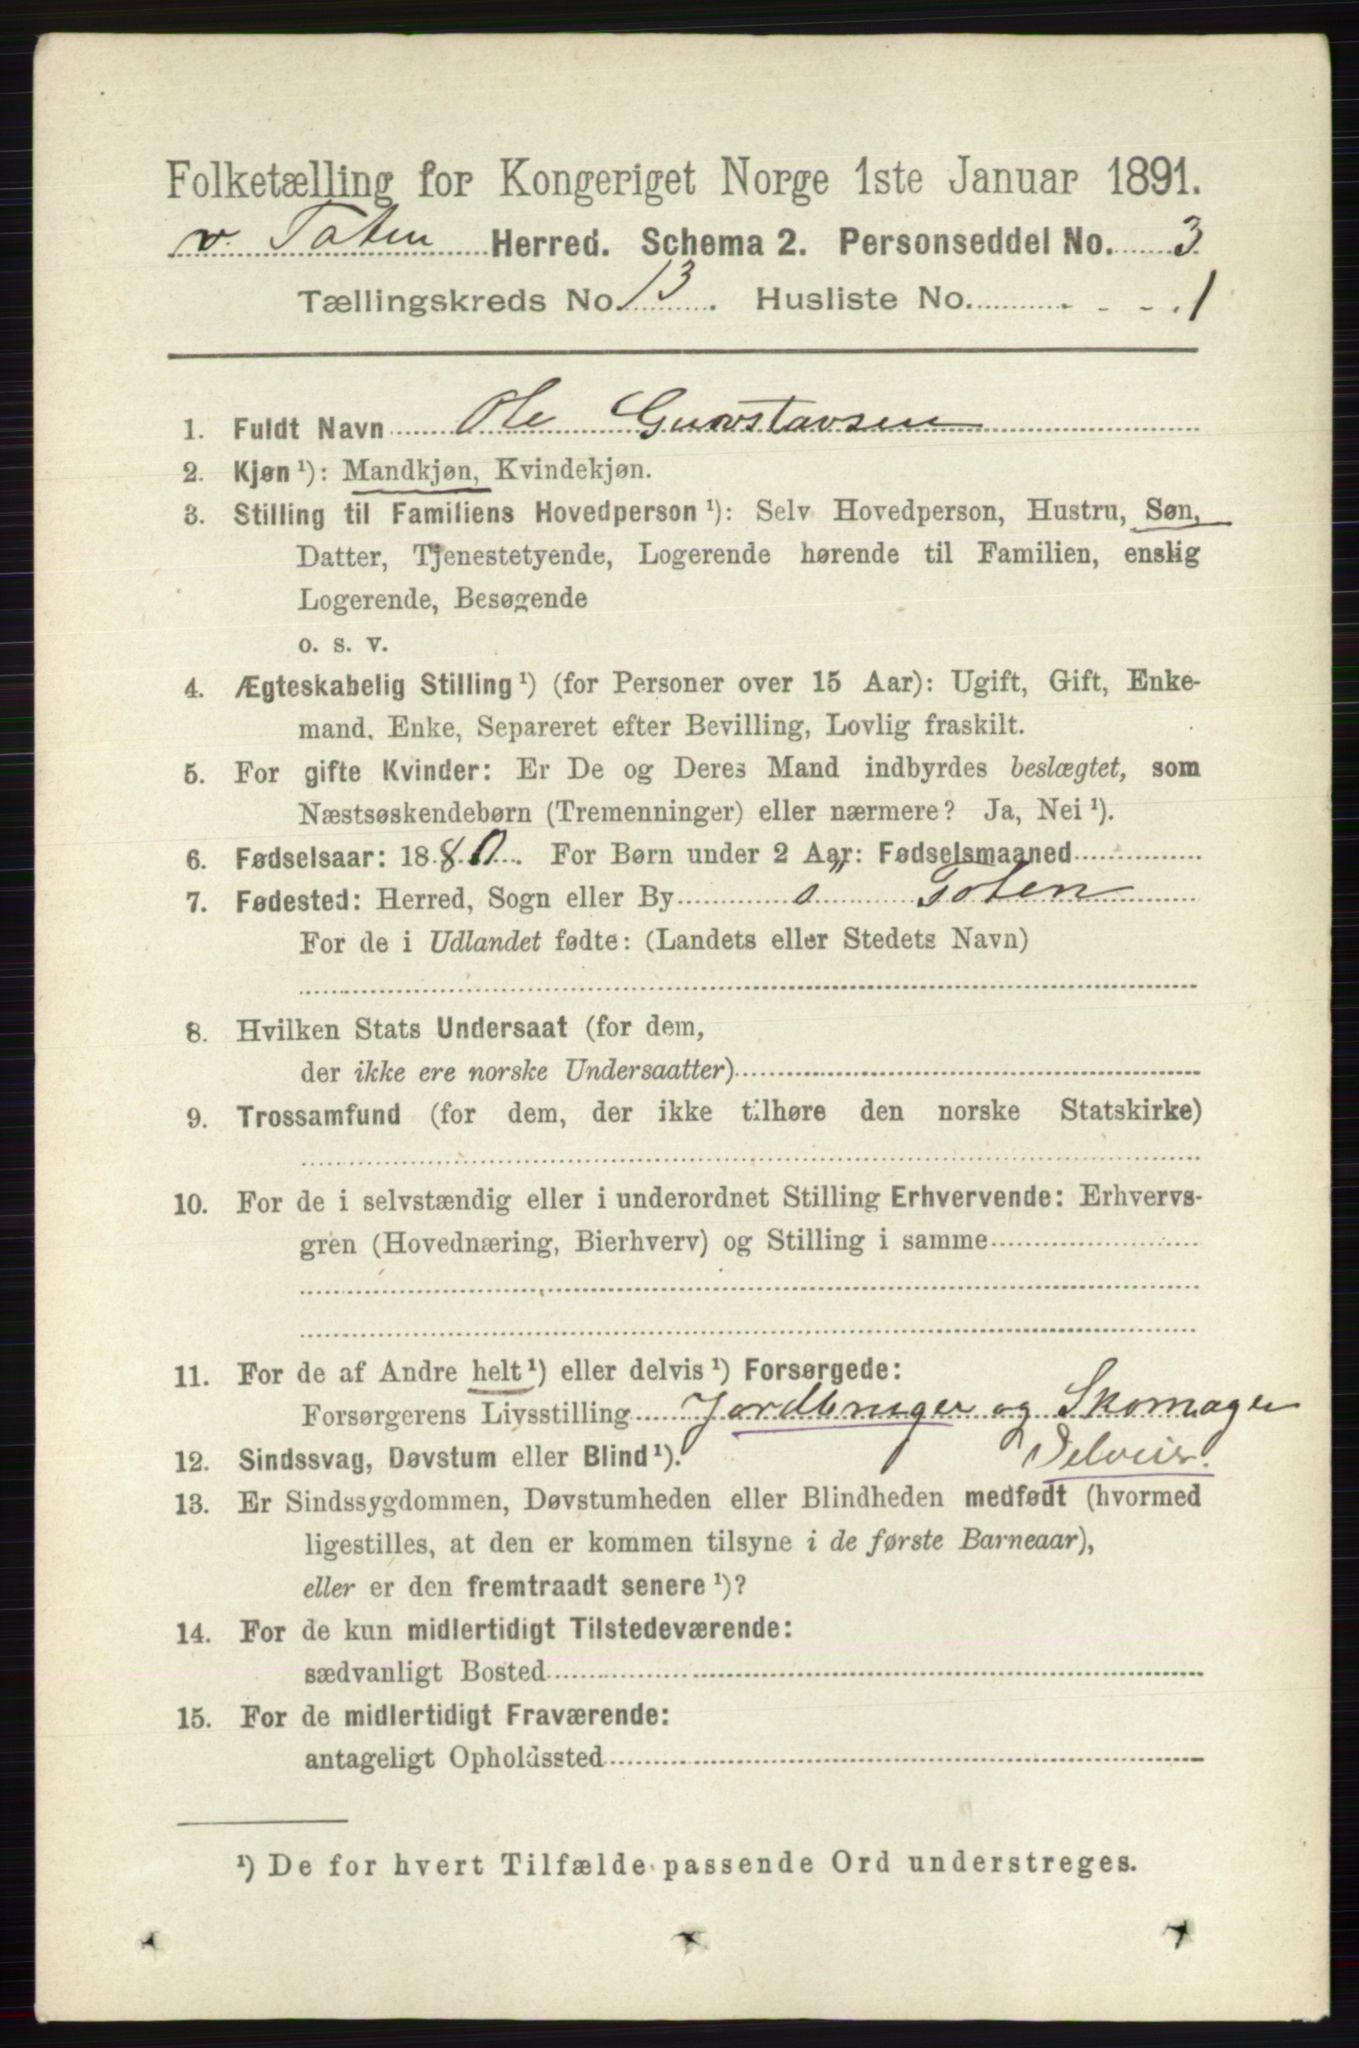 Folketælling for Kongeriget Norge 1ste Januar 1891.
v. Toten Herred. Schema 2. Personseddel No. 3
Tællingskreds No. 13. Husliste No. 1
1. Fuldt Navn Ole Gunstavsen
2. Kjøn ¹): Mandkjøn, Kvindekjøn.
3. Stilling til Familiens Hovedperson ¹): Selv Hovedperson, Hustru, Søn,
Datter, Tjenestetyende, Logerende hørende til Familien, enslig
Logerende, Besøgende
o. s. v.
4. Ægteskabelig Stilling ¹) (for Personer over 15 Aar): Ugift, Gift, Enke-
mand, Enke, Separeret efter Bevilling, Lovlig fraskilt.
5. For gifte Kvinder: Er De og Deres Mand indbyrdes beslægtet, som
Næstsøskendebørn (Tremenninger) eller nærmere? Ja, Nei ¹).
6. Fødselsaar: 1880. For Børn under 2 Aar: Fødselsmaaned
7. Fødested: Herred, Sogn eller By ø Toten
For de i Udlandet fødte: (Landets eller Stedets Navn)
8. Hvilken Stats Undersaat (for dem,
der ikke ere norske Undersaatter)
9. Trossamfund (for dem, der ikke tilhøre den norske Statskirke)
10. For de i selvstændig eller i underordnet Stilling Erhvervende: Erhvervs-
gren (Hovednæring, Bierhverv) og Stilling i samme
11. For de af Andre helt ¹) eller delvis ¹) Forsørgede:
Forsørgerens Livsstilling Jordbruger og Skomager
12. Sindssvag, Døvstum eller Blind ¹). Selveier.
13. Er Sindssygdommen, Døvstumheden eller Blindheden medfødt (hvormed
ligestilles, at den er kommen tilsyne i de første Barneaar),
eller er den fremtraadt senere ¹)?
14. For de kun midlertidigt Tilstedeværende:
sædvanligt Bosted
15. For de midlertidigt Fraværende:
antageligt Opholdssted
¹) De for hvert Tilfælde passende Ord understreges.